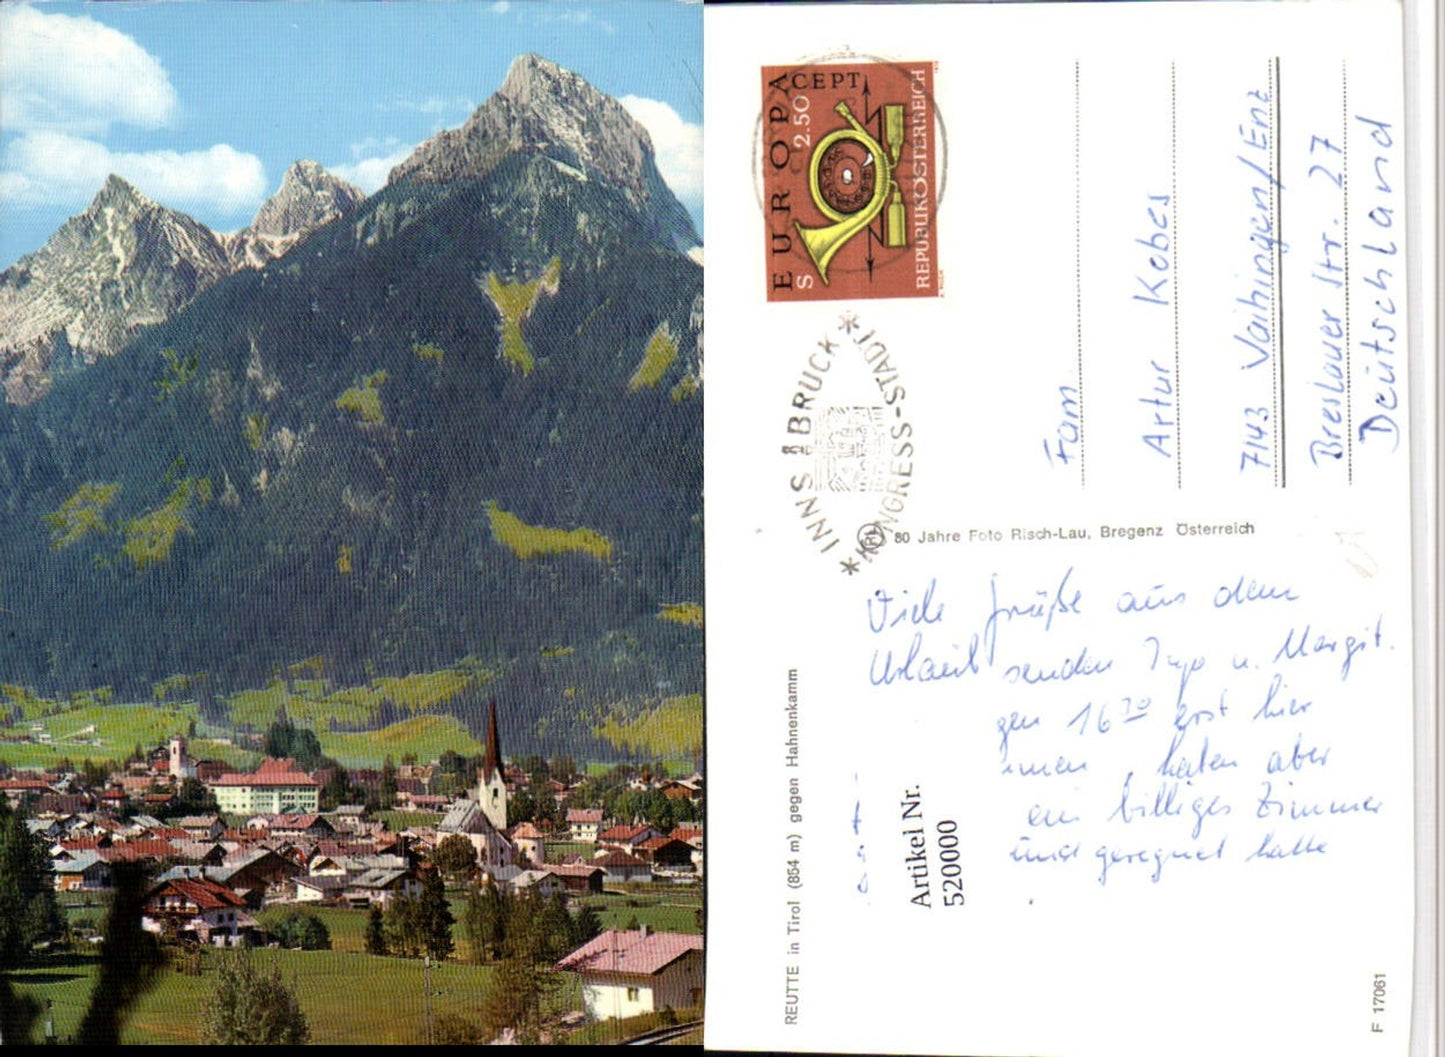 EUROPA CEPT
S 2.50
REPUBLIK ÖSTERREICH
INNSBRUCK
KONGRESS-STADT
Fam.
Artur Kobes
7143 Vaihingen/Enz
Breslauer Str. 27
Deutschland
80 Jahre Foto Risch-Lau, Bregenz Österreich
Viele Grüße aus dem
Urlaub senden Ingo u. Margit.
gen 16 30 erst hier
haben aber
ein billiges Zimmer
und geregnet hatte
Artikel Nr.
520000
REUTTE in Tirol (854 m) gegen Hahnenkamm
F 17061